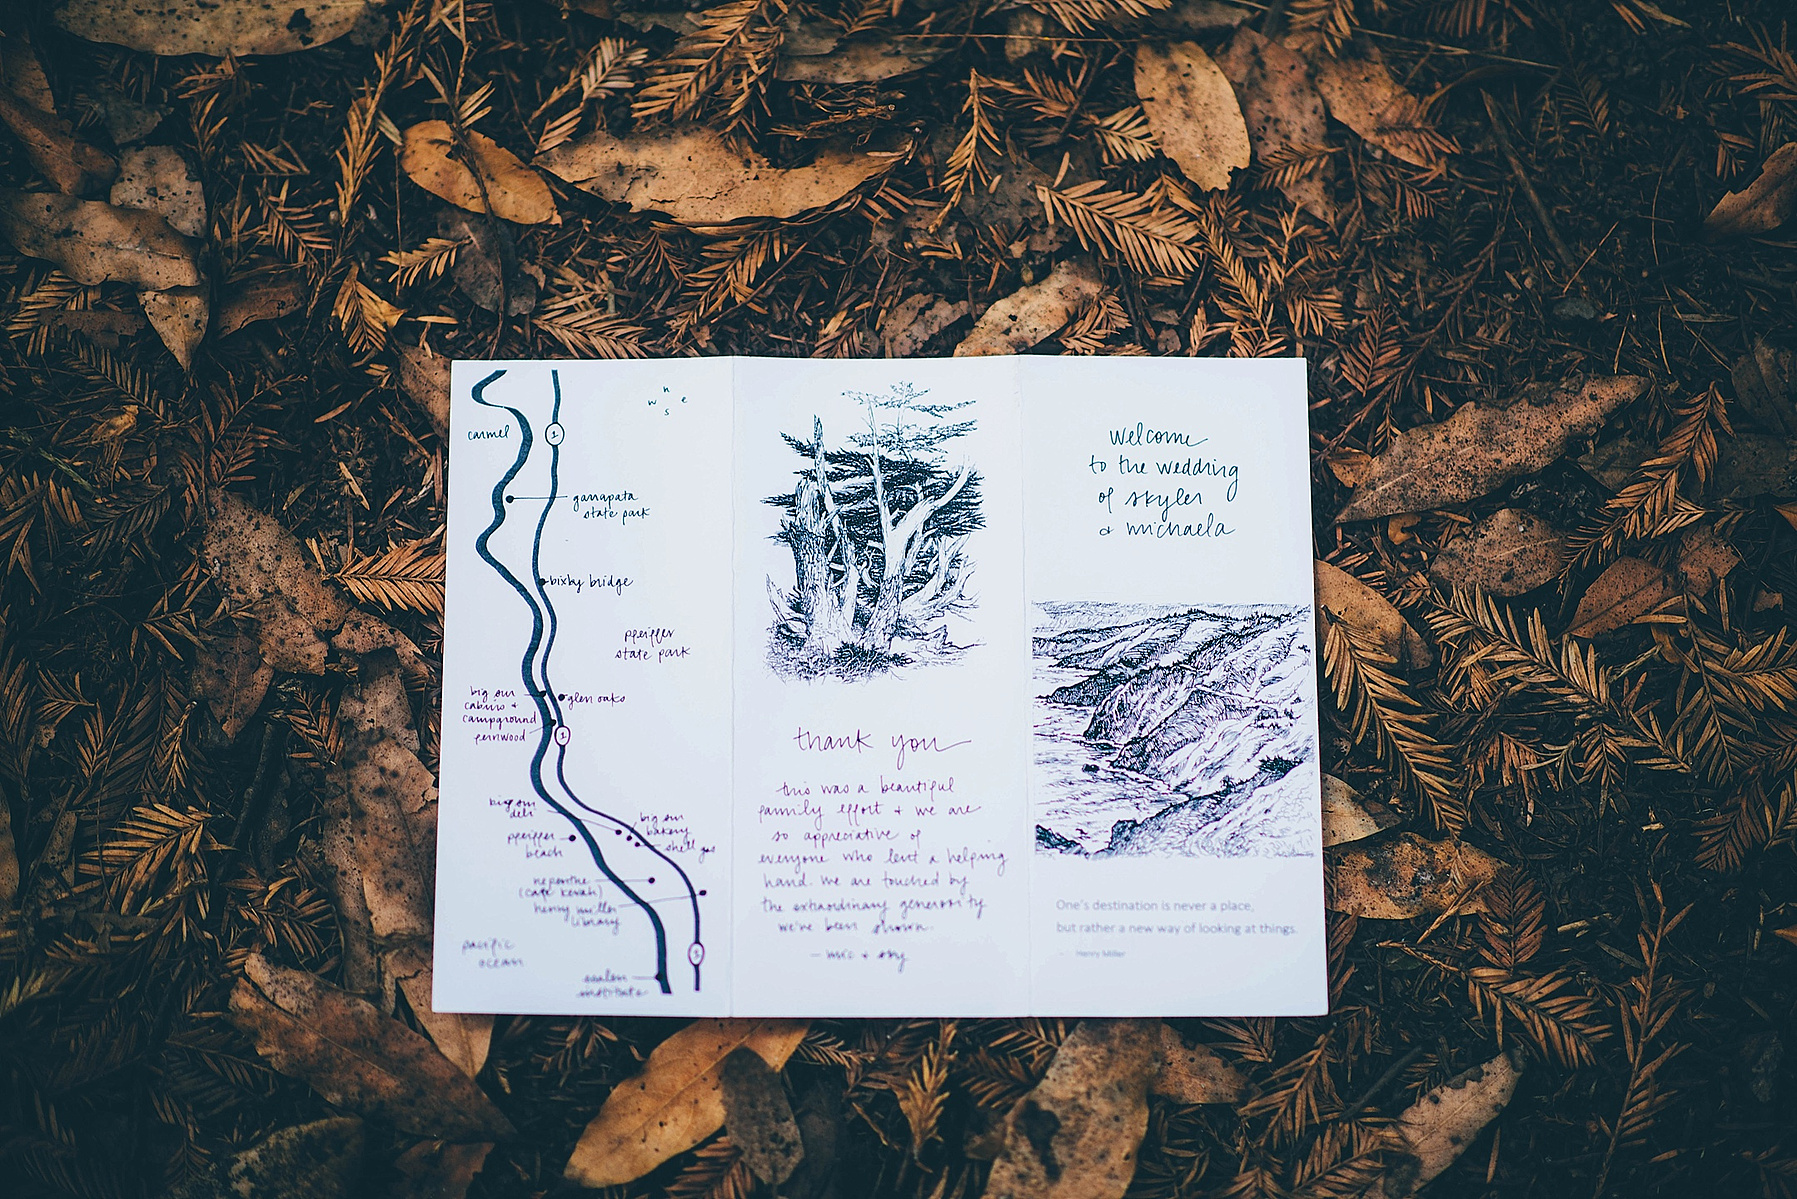 n
w e
s
carmel
1
garrapata
state park
bixby bridge
pfeiffer
state park
big sur
cabins +
campground
fernwood
glen oaks
1
big sur
deli
big sur
bakery
shell gas
pfeiffer
beach
nepenthe
(cafe kevah)
henry miller
library
pacific
ocean
1
esalen
institute
thank you
this was a beautiful
family effort + we are
so appreciative of
everyone who lent a helping
hand. we are touched by
the extraordinary generosity
we've been shown.
- mic + sky
welcome
to the wedding
of skyler
& michaela
One's destination is never a place,
but rather a new way of looking at things.
- Henry Miller